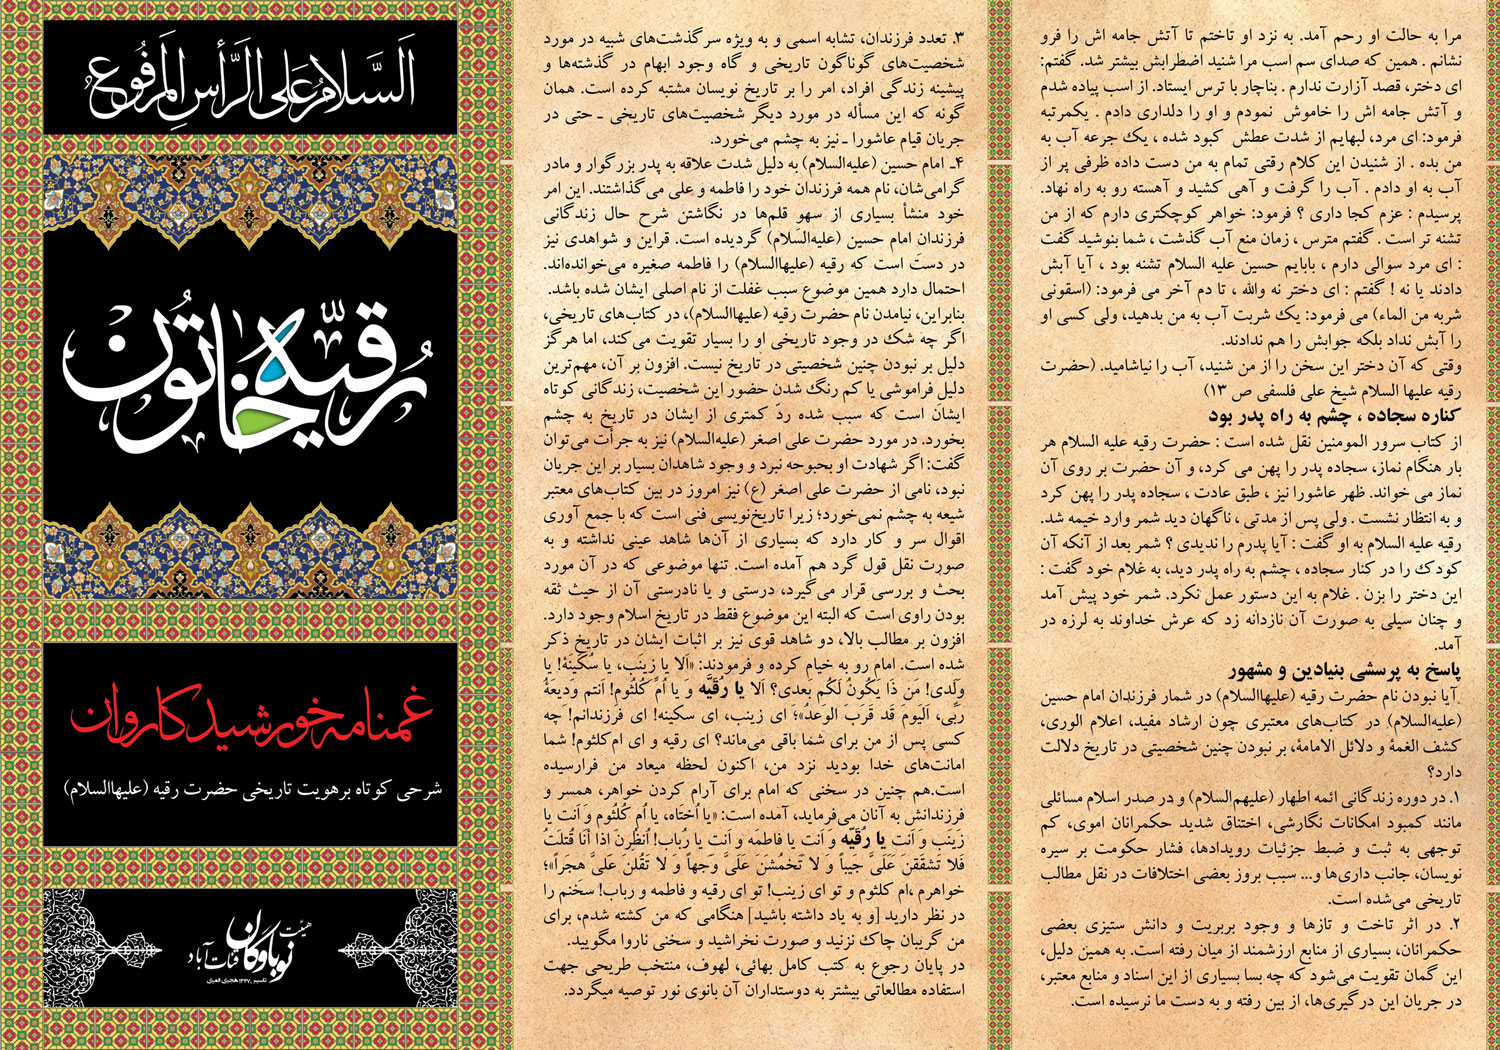 مرا به حالت او رحم آمد. به نزد او تاختم تا آتش جامه اش را فرو
نشانم . همین که صدای سم اسب مرا شنید اضطرابش بیشتر شد. گفتم:
ای دختر، قصد آزارت ندارم . بناچار با ترس ایستاد. از اسب پیاده شدم
و آتش جامه اش را خاموش نمودم و او را دلداری دادم . یکمرتبه
فرمود: ای مرد، لبهایم از شدت عطش کبود شده ، یک جرعه آب به
من بده . از شنیدن این کلام رقتی تمام به من دست داده ظرفی پر از
آب به او دادم . آب را گرفت و آهی کشید و آهسته رو به راه نهاد.
پرسیدم : عزم کجا داری ؟ فرمود: خواهر کوچکتری دارم که از من
تشنه تر است . گفتم مترس ، زمان منع آب گذشت ، شما بنوشید گفت
: ای مرد سوالی دارم ، بابایم حسین علیه السلام تشنه بود ، آیا آبش
دادند یا نه ! گفتم : ای دختر نه والله ، تا دم آخر می فرمود: (اسقونی
شربه من الماء) می فرمود: یک شربت آب به من بدهید، ولی کسی او
را آبش نداد بلکه جوابش را هم ندادند.
وقتی که آن دختر این سخن را از من شنید، آب را نیاشامید. (حضرت
رقیه علیها السلام شیخ علی فلسفی ص ۱۳)
کناره سجاده ، چشم به راه پدر بود
از کتاب سرور المومنین نقل شده است : حضرت رقیه علیه السلام هر
بار هنگام نماز، سجاده پدر را پهن می کرد، و آن حضرت بر روی آن
نماز می خواند. ظهر عاشورا نیز ، طبق عادت ، سجاده پدر را پهن کرد
و به انتظار نشست . ولی پس از مدتی ، ناگهان دید شمر وارد خیمه شد.
رقیه علیه السلام به او گفت : آیا پدرم را ندیدی ؟ شمر بعد از آنکه آن
کودک را در کنار سجاده ، چشم به راه پدر دید، به غلام خود گفت :
این دختر را بزن . غلام به این دستور عمل نکرد. شمر خود پیش آمد
و چنان سیلی به صورت آن نازدانه زد که عرش خداوند به لرزه در
آمد.
پاسخ به پرسشی بنیادین و مشهور
آیا نبودن نام حضرت رقیه (علیهاالسلام) در شمار فرزندان امام حسین
(علیه‌السلام) در کتاب‌های معتبری چون ارشاد مفید، اعلام الوری،
کشف الغمهٔ و دلائل الامامهٔ، بر نبودن چنین شخصیتی در تاریخ دلالت
دارد؟
۱. در دوره زندگانی ائمه اطهار (علیهم‌السلام) و در صدر اسلام مسائلی
مانند کمبود امکانات نگارشی، اختناق شدید حکمرانان اموی، کم
توجهی به ثبت و ضبط جزئیات رویدادها، فشار حکومت بر سیره
نویسان، جانب داری‌ها و... سبب بروز بعضی اختلافات در نقل مطالب
تاریخی می‌شده است.
۲. در اثر تاخت و تازها و وجود بربریت و دانش ستیزی بعضی
حکمرانان، بسیاری از منابع ارزشمند از میان رفته است. به همین دلیل،
این گمان تقویت می‌شود که چه بسا بسیاری از این اسناد و منابع معتبر،
در جریان این درگیری‌ها، از بین رفته و به دست ما نرسیده است.
۳. تعدد فرزندان، تشابه اسمی و به ویژه سرگذشت‌های شبیه در مورد
شخصیت‌های گوناگون تاریخی و گاه وجود ابهام در گذشته‌ها و
پیشینه زندگی افراد، امر را بر تاریخ نویسان مشتبه کرده است. همان
گونه که این مسأله در مورد دیگر شخصیت‌های تاریخی ـ حتی در
جریان قیام عاشورا ـ نیز به چشم می‌خورد.
۴ـ امام حسین (علیه‌السلام) به دلیل شدت علاقه به پدر بزرگوار و مادر
گرامی‌شان، نام همه فرزندان خود را فاطمه و علی می‌گذاشتند. این امر
خود منشأ بسیاری از سهو قلم‌ها در نگاشتن شرح حال زندگانی
فرزندان امام حسین (علیه‌السلام) گردیده است. قراین و شواهدی نیز
در دست است که رقیه (علیهاالسلام) را فاطمه صغیره می‌خوانده‌اند.
احتمال دارد همین موضوع سبب غفلت از نام اصلی ایشان شده باشد.
بنابراین، نیامدن نام حضرت رقیه (علیهاالسلام)، در کتاب‌های تاریخی،
اگر چه شک در وجود تاریخی او را بسیار تقویت می‌کند، اما هرگز
دلیل بر نبودن چنین شخصیتی در تاریخ نیست. افزون بر آن، مهم‌ترین
دلیل فراموشی یا کم رنگ شدن حضور این شخصیت، زندگانی کوتاه
ایشان است که سبب شده ردّ کمتری از ایشان در تاریخ به چشم
بخورد. در مورد حضرت علی اصغر (علیه‌السلام) نیز به جرأت می‌توان
گفت: اگر شهادت او بحبوحه نبرد و وجود شاهدان بسیار بر این جریان
نبود، نامی از حضرت علی اصغر (ع) نیز امروز در بین کتاب‌های معتبر
شیعه به چشم نمی‌خورد؛ زیرا تاریخ‌نویسی فنی است که با جمع آوری
اقوال سر و کار دارد که بسیاری از آن‌ها شاهد عینی نداشته و به
صورت نقل قول گرد هم آمده است. تنها موضوعی که در آن مورد
بحث و بررسی قرار می‌گیرد، درستی و یا نادرستی آن از حیث ثقه
بودن راوی است که البته این موضوع فقط در تاریخ اسلام وجود دارد.
افزون بر مطالب بالا، دو شاهد قوی نیز بر اثبات ایشان در تاریخ ذکر
شده است. امام رو به خیام کرده و فرمودند: «اَلا یا زِینَب، یا سُکَینَهٔ! یا
وَلَدی! مَن ذَا یَکُونُ لَکُم بَعدِی؟ اَلا یا رُقَیَّه وَ یا اُم کُلثُوم! اَنتم وَدِیعَهٔ
رَبِّی، اَلیَومَ قَد قَرَبَ الوَعدُ»؛ ای زینب، ای سکینه! ای فرزندانم! چه
کسی پس از من برای شما باقی می‌ماند؟ ای رقیه و ای ام‌کلثوم! شما
امانت‌های خدا بودید نزد من، اکنون لحظه میعاد من فرارسیده
است.هم چنین در سخنی که امام برای آرام کردن خواهر، همسر و
فرزندانش به آنان می‌فرماید، آمده است: «یا اُختَاه، یا اُم کُلثُوم وَ اَنتِ یا
زَینَب وَ اَنتِ یا رُقَیّه وَ اَنتِ یا فاطمَه و اَنتِ یا رُباب! اُنظُرنَ اذا اَنَا قُتلتُ
فَلا تَشققنَ عَلَیَّ جَیباً وَ لا تَخمُشنَ عَلَیَّ وَجهاً وَ لا تَقُلنَ عَلَیَّ هجراً»؛
خواهرم ،ام کلثوم و تو ای زینب! تو ای رقیه و فاطمه و رباب! سخنم را
در نظر دارید [و به یاد داشته باشید] هنگامی که من کشته شدم، برای
من گریبان چاک نزنید و صورت نخراشید و سخنی ناروا مگویید.
در پایان رجوع به کتب کامل بهائی، لهوف، منتخب طریحی جهت
استفاده مطالعاتی بیشتر به دوستداران آن بانوی نور توصیه میگردد.
اَلسَّلامُ عَلَی الرَّأسِ المَرفُوع
رُقیّه خاتون
غمنامه خورشید کاروان
شرحی کوتاه برهویت تاریخی حضرت رقیه (علیهاالسلام)
هیئت
نوباوگان
قنات آباد
تاسیس ۱۳۴۷ هجری قمری